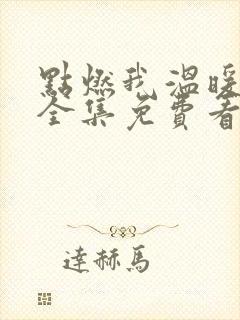 點燃我溫暖
全集免費看
達赫馬